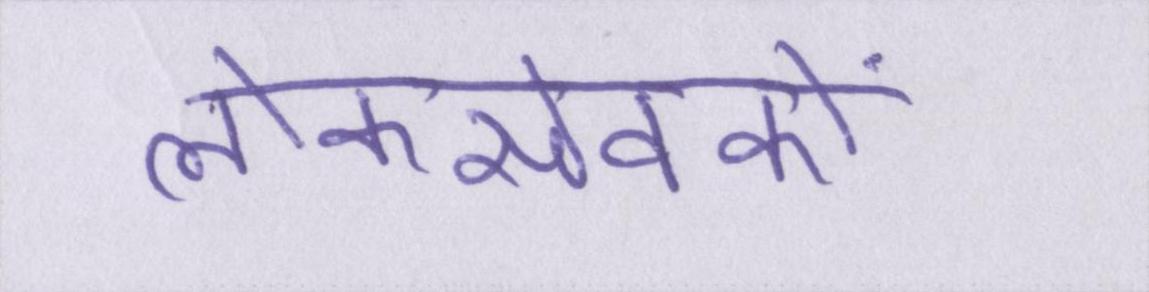 लोकसेवकों